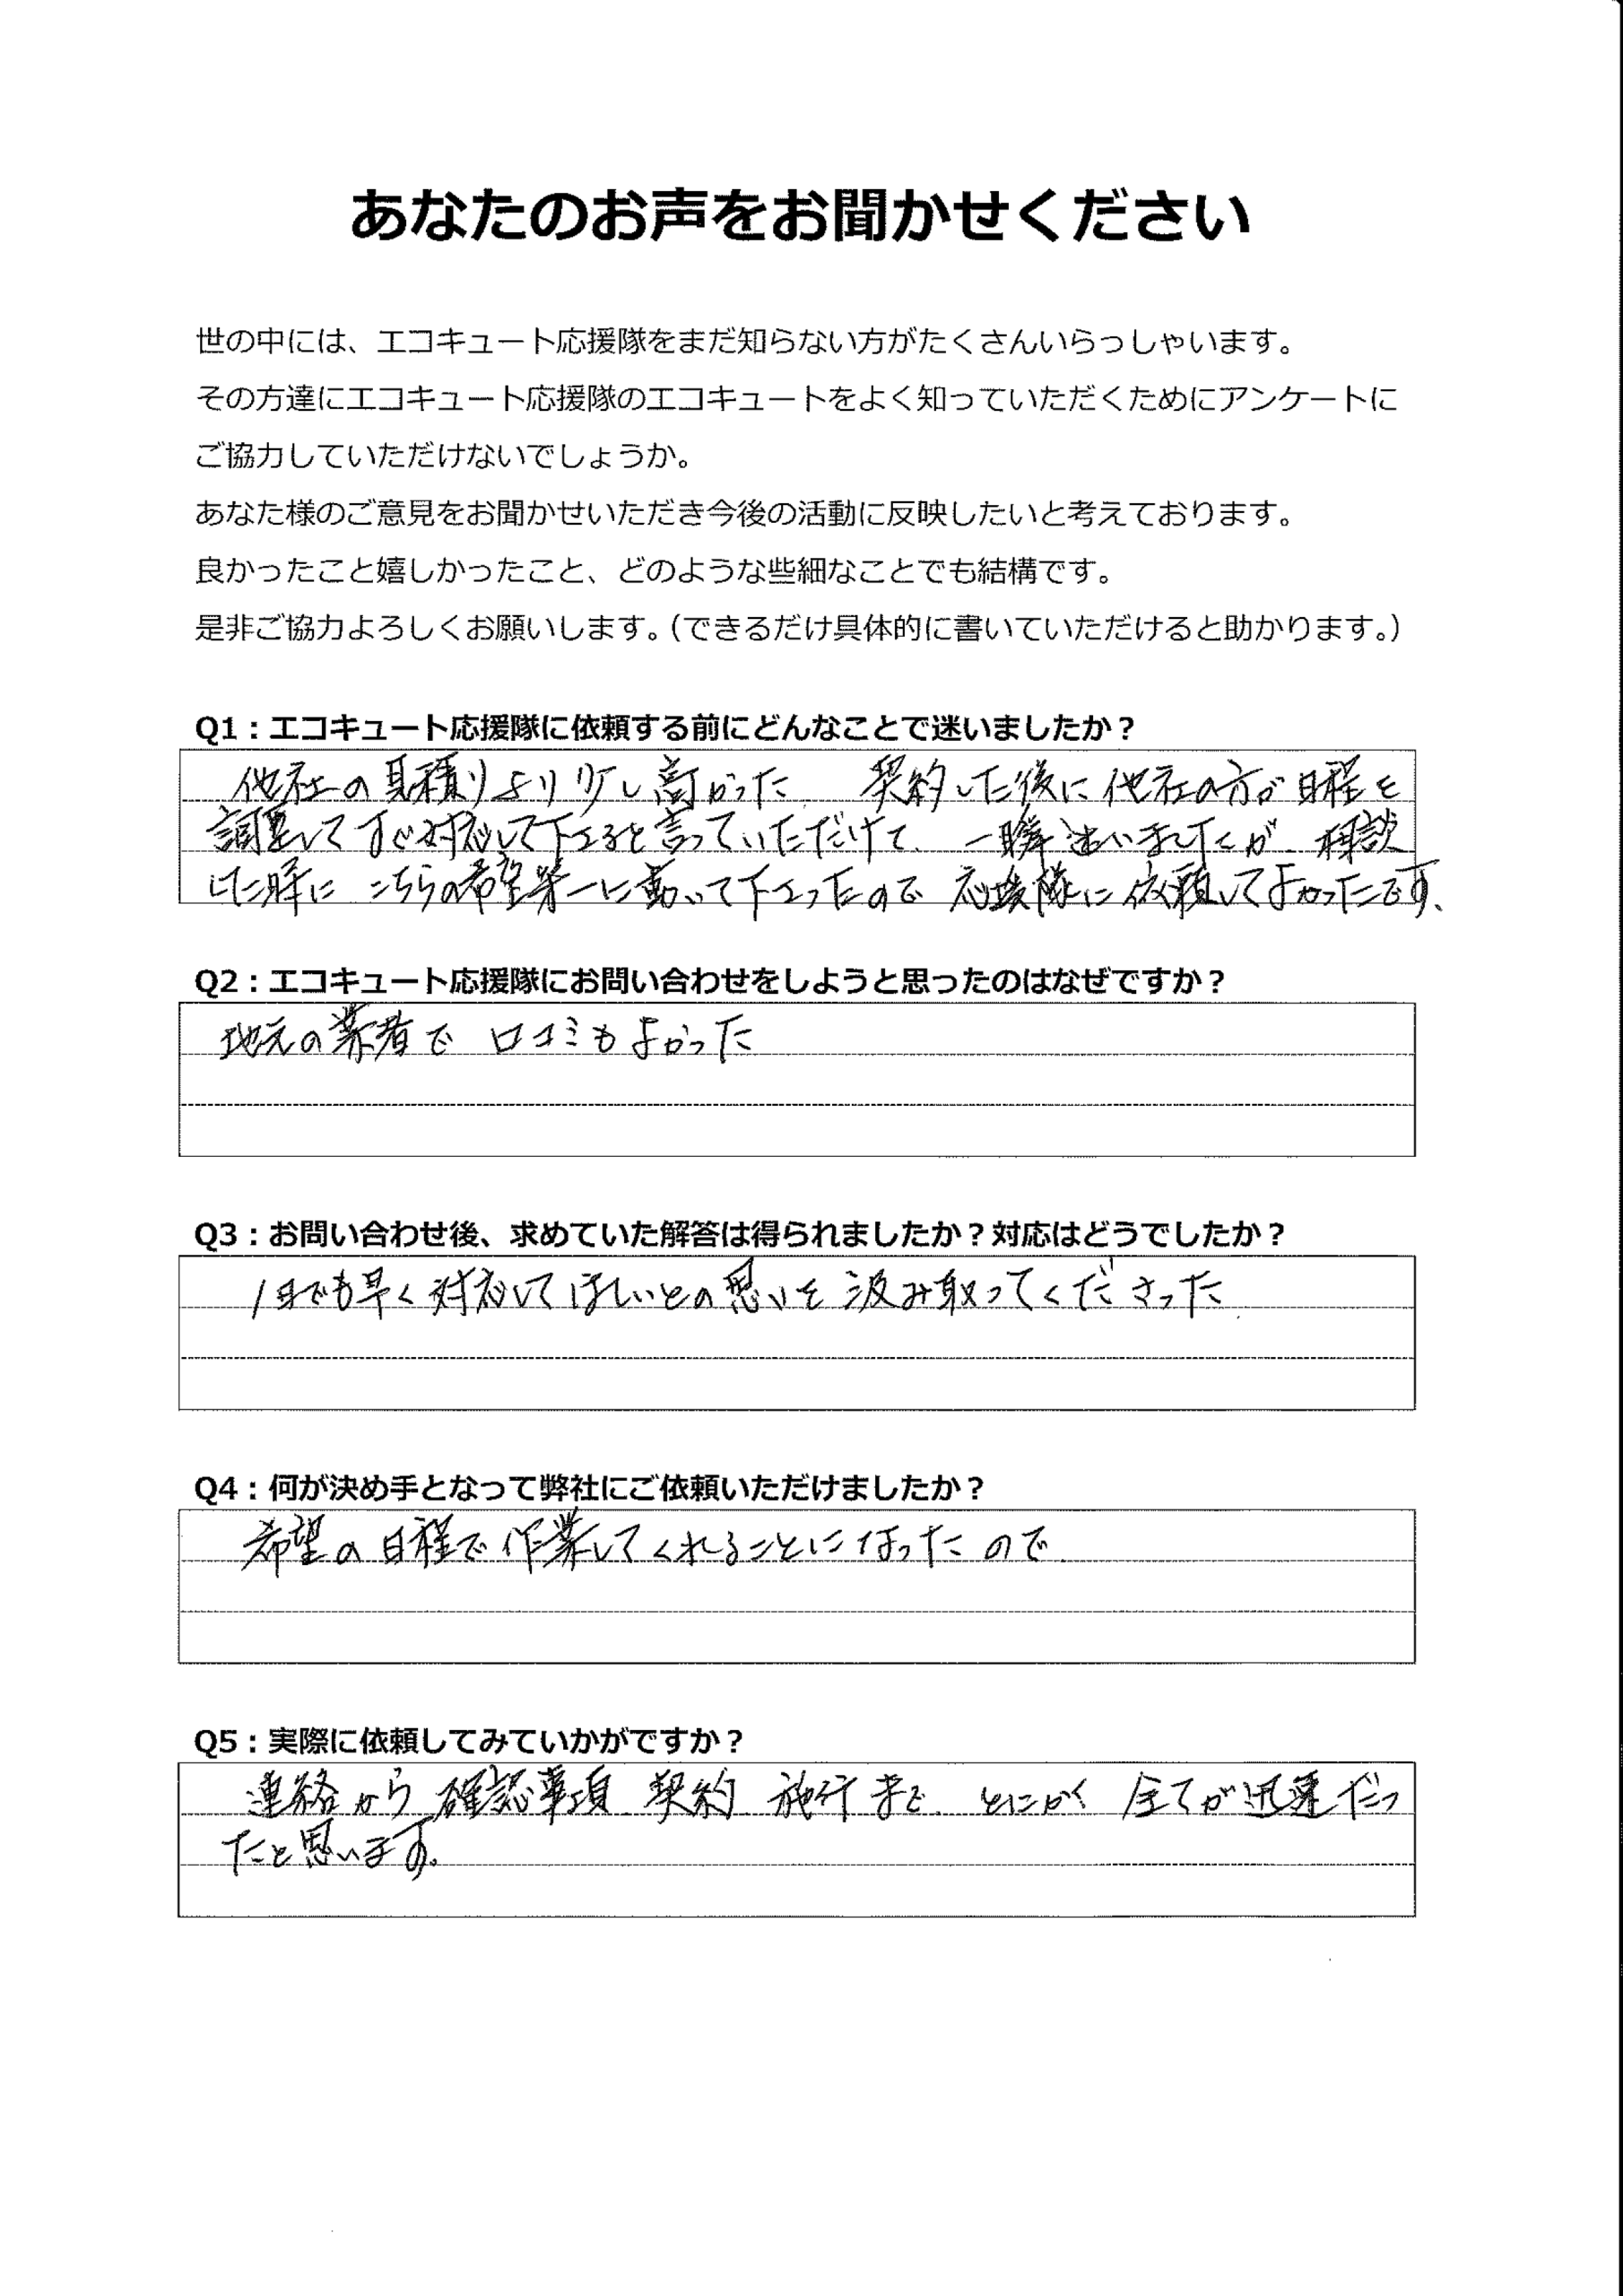 あなたのお声をお聞かせください
世の中には、エコキュート応援隊をまだ知らない方がたくさんいらっしゃいます。
その方達にエコキュート応援隊のエコキュートをよく知っていただくためにアンケートに
ご協力していただけないでしょうか。
あなた様のご意見をお聞かせいただき今後の活動に反映したいと考えております。
良かったこと嬉しかったこと、どのような些細なことでも結構です。
是非ご協力よろしくお願いします。（できるだけ具体的に書いていただけると助かります。）
Q1：エコキュート応援隊に依頼する前にどんなことで迷いましたか？
他社の見積りより少し高かった 契約した後に他社の方が日程を
調整してすぐ対応して下さると言っていただけて、一瞬迷いましたが、相談
した時に こちらの希望第一に動いて下さったので 応援隊に依頼してよかったです、
Q2：エコキュート応援隊にお問い合わせをしようと思ったのはなぜですか？
地元の業者で 口コミもよかった
Q3：お問い合わせ後、求めていた解答は得られましたか？対応はどうでしたか？
1日でも早く対応してほしいとの思いを汲み取ってくださった.
Q4：何が決め手となって弊社にご依頼いただけましたか？
希望の日程で作業してくれることになったので.
Q5：実際に依頼してみていかがですか？
連絡から 確認事項 契約 施行まで. とにかく 全てが迅速だっ
たと思います。